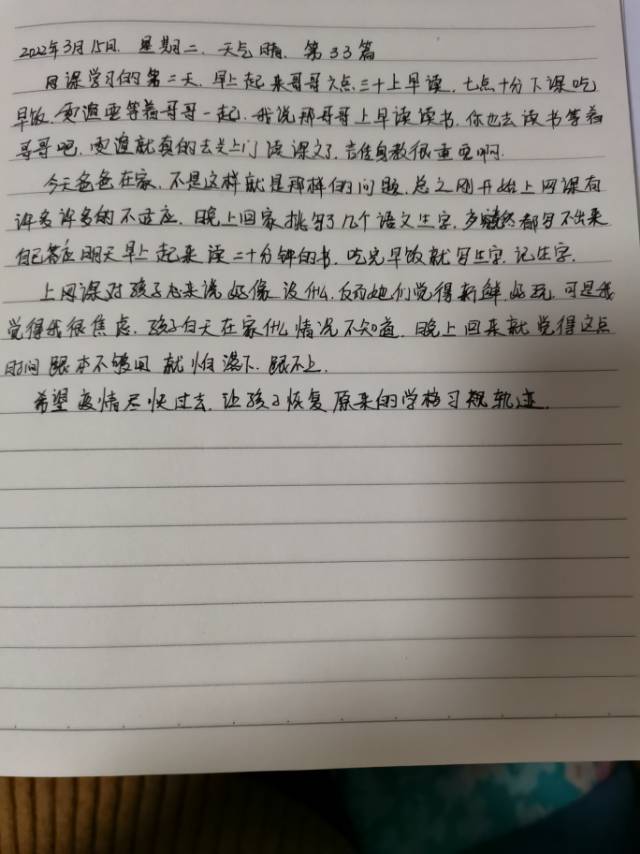 2022年3月15日. 星期二. 天气晴. 第33篇
网课学习的第二天. 早上起来哥哥六点三十上早读. 七点十分下课吃
早饭. 要等着哥哥一起. 我说那哥哥上早读读书. 你也去读书等着
哥哥吧. 就真的去关上门读课文了. 言传身教很重要啊.
今天爸爸在家. 不是这样就是那样的问题. 总之刚开始上网课有
许多许多的不适应. 晚上回家挑写了几个语文生字. 多都写不出来
自己答应明天早上起来读二十分钟的书. 吃完早饭就写生字. 记生字.
上网课对孩子们来说好像没什么. 反而她们觉得新鲜好玩. 可是我
觉得我很焦虑. 孩子白天在家什么情况不知道. 晚上回来就觉得这点
时间跟本不够用就怕落下. 跟不上.
希望疫情尽快过去. 让孩子恢复原来的学校习规轨迹.